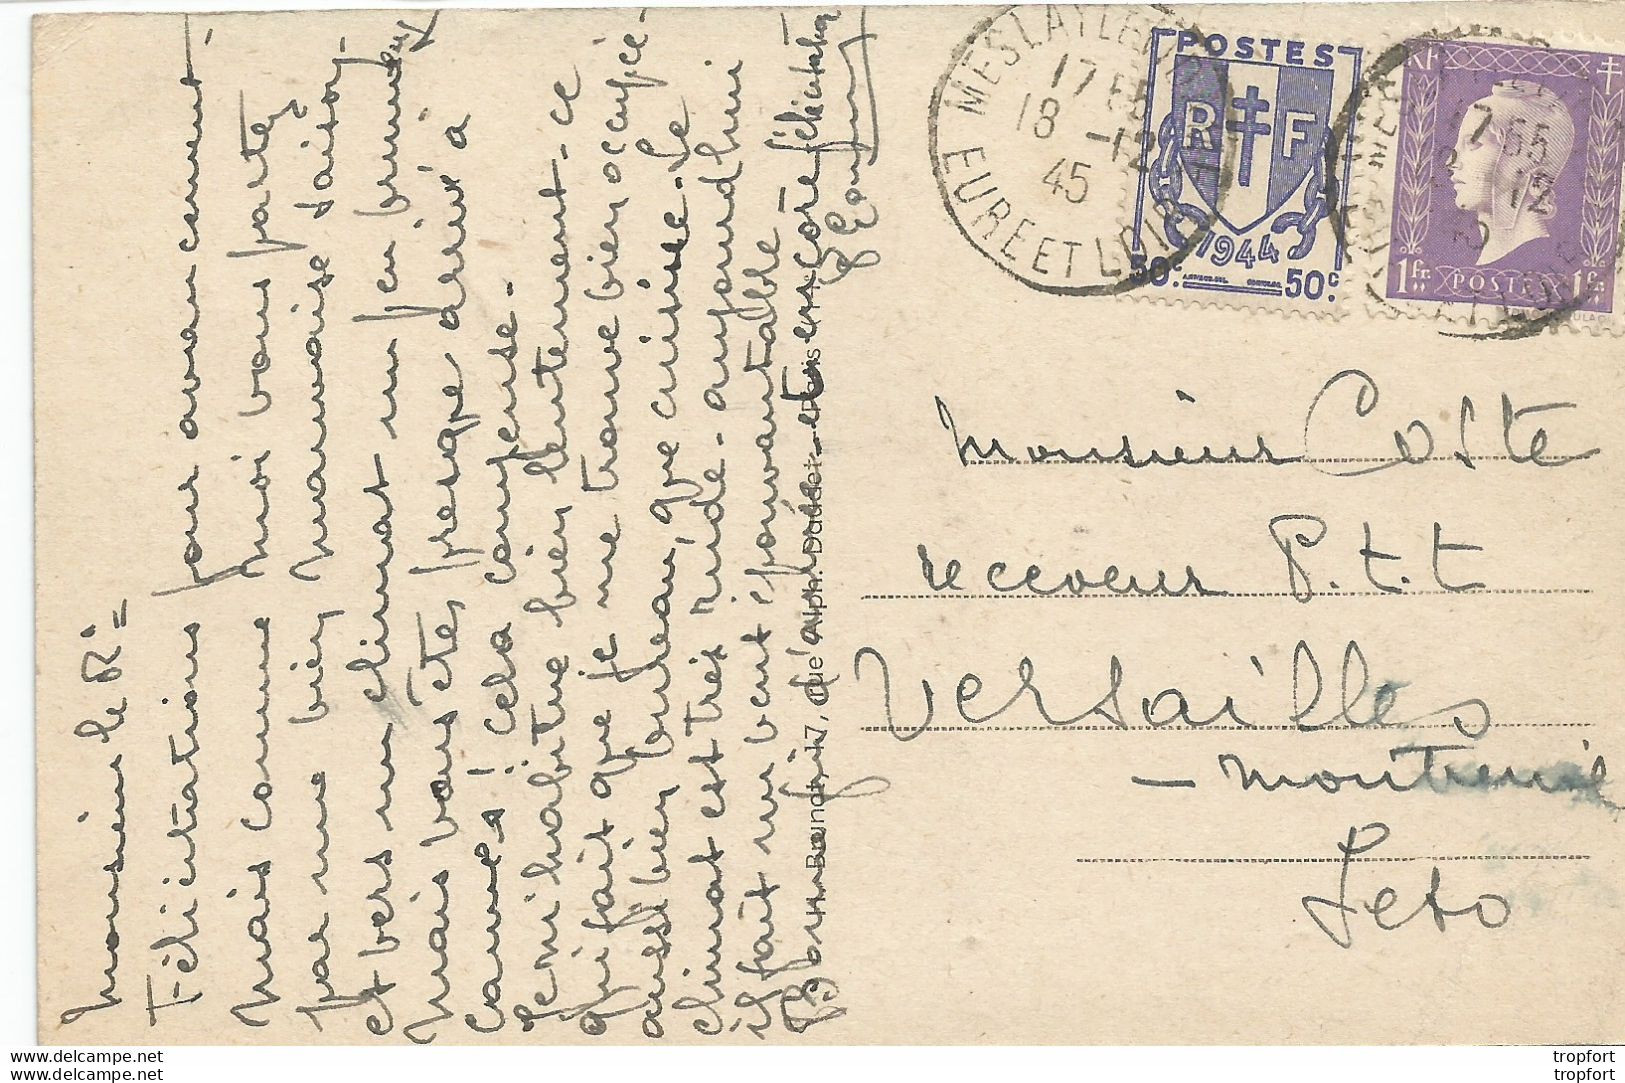 Monsieur le R
Félicitations pour avancement.
Mais comme moi vous partez
par une bien mauvaise saison,
et vers un climat un peu brumeux
Mais vous êtes presque arrivé à
! cela compense.
Je m'habitue bien lentement. ce
qui fait que je me trouve bien occupée.
aussi bien bureau, que cuisine. Le
climat est très rude. aujourd'hui
il fait un vent épouvantable
et encore félicitations
rue Alph. Daudet - Paris
MESLAY LE
17 55
18 -12
45
EURE ET LOIR
POSTES
R F
1944
50c. 50c.
RF
17 55
12
1fr. POSTES 1fr.
Monsieur Coste
receveur P.t.t
Versailles
- Montreuil
Seto
www.delcampe.net
www.delcampe.net
tropfort
tropfort